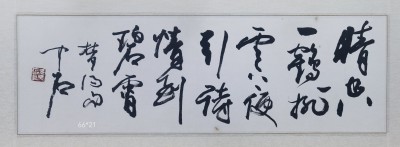 晴空
一鶴排
雲上便
引詩
情到
碧霄
梦得句
中石